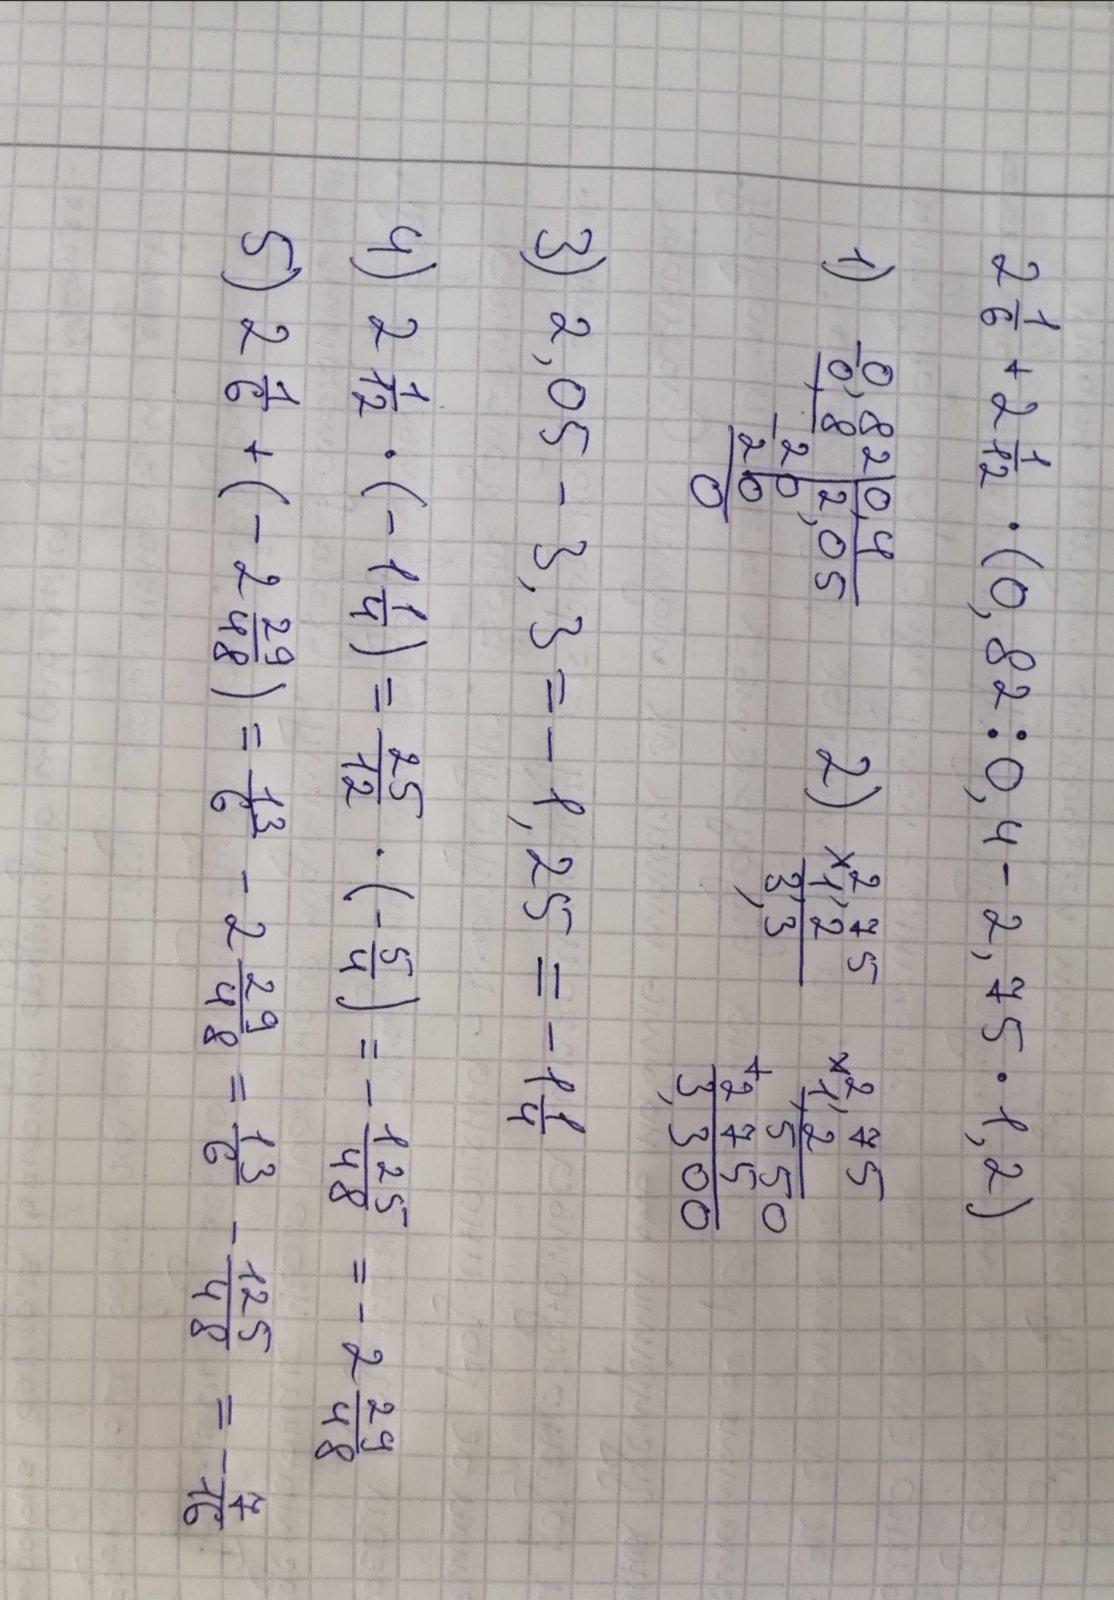 2 1/6 + 2 1/12 · (0,82 : 0,4 - 2,75 · 1,2)
1) 0,82 | 0,4    2) × 2,75    × 2,75
- 0,8 | 2,05    1,2    1,2
- 20    3,3    550
20    + 275
0    3,300
3) 2,05 - 3,3 = -1,25 = -1 1/4
4) 2 1/12 · (-1 1/4) = 25/12 · (-5/4) = -125/48 = -2 29/48
5) 2 1/6 + (-2 29/48) = 13/6 - 2 29/48 = 13/6 - 125/48 = -7/16